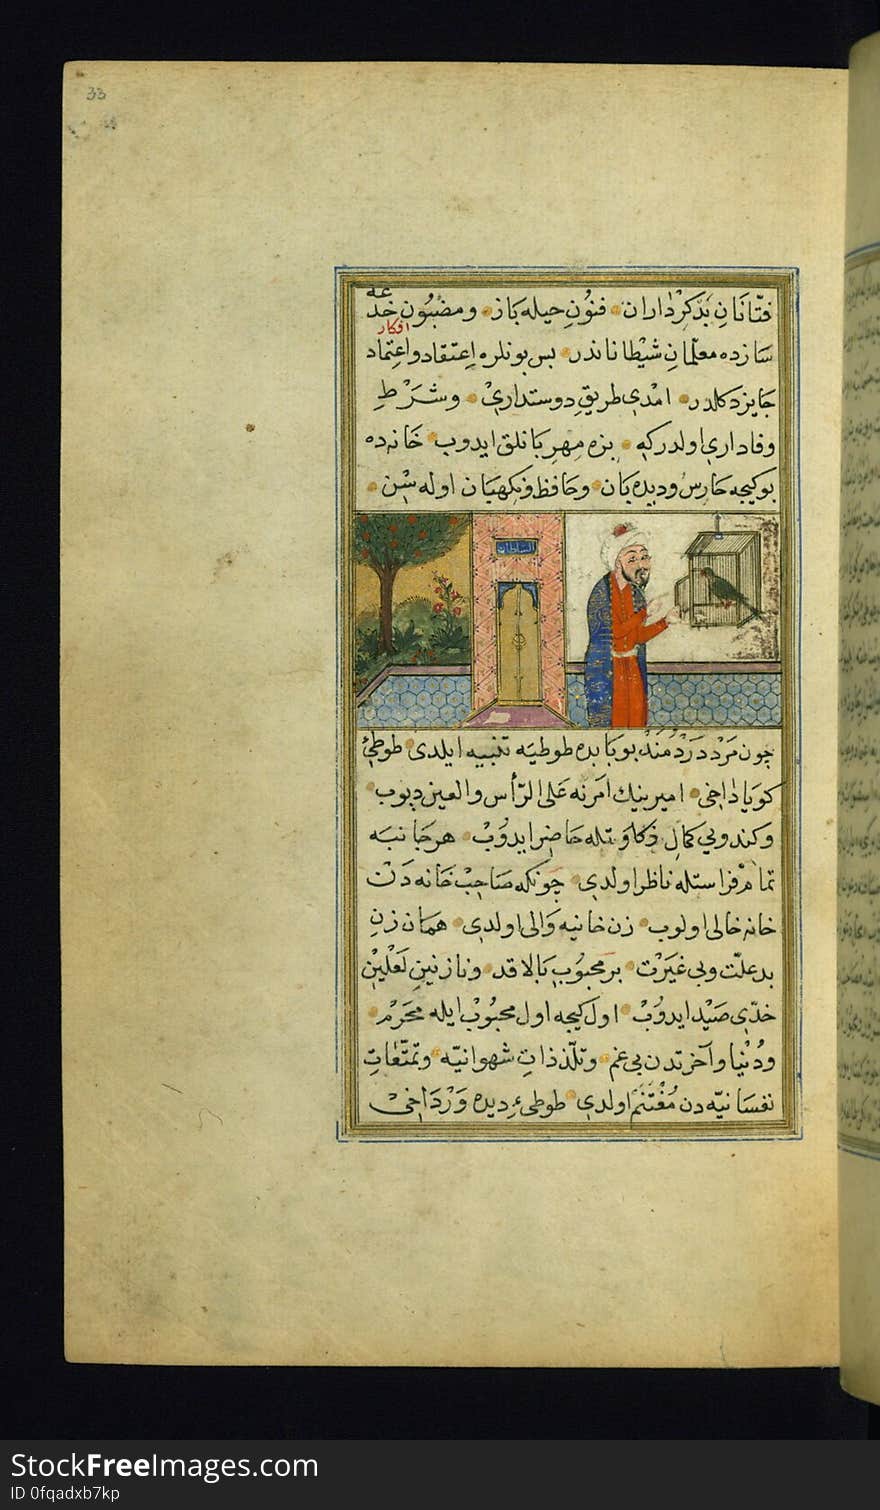 33
فتّانانِ بَدکِرْداران فنونِ حیله‌باز ومضبُونِ خدعه
افکار
سازده معلّمانِ شیْطاناندر بس بونلره اِعتقاد واعتماد
جایزدکلدر امْدی طریقِ دوستداریْ وشَرْطِ
وفاداری اولدرکه بزه مِهرِبانلق ایدوب خانه‌ده
بوکیجه حَارس ودیده‌بان وحافظ ونکهبان اوله سْن
السلطان
چون مَردِ دَرْدمَنْد بو بابده طوطیه تنبیه ایلدی طوطئ
کویا داخی امیرینك امرنه عَلی الرّأس والعین دیوب
وکندویی کمالِ ذکاوتله حاضر ایدوُبْ هر جانبه
تمام فراستله ناظر اولدی چونکه صاحب خانه دَنْ
خانه خالی اولوب زن خانیه والی اولدی همان زنِ
بدعلّت وبی غیَرْت بر محبوُبِ بالاقد ونازنینِ لَعْلین
خدّی صَیْد ایدوُبْ اول کیجه اول محبُوبْ ایله محرَمْ
ودُنْیا وآخرتدن بی غم وتلذّذاتِ شهوانیّه وتمتّعاتِ
نفسانیّه دن مُغْتَنَم اولدی طوطئ دیده وَرْ دَاخیْ
StockFreeImages.com
ID 0fqadxb7kp